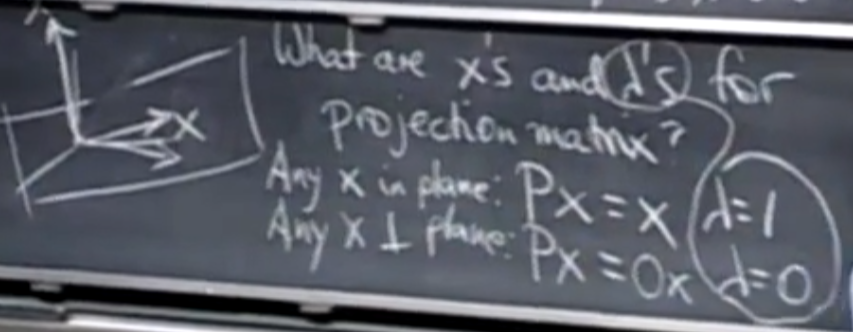 What are x's and λ's for
projection matrix?
Any x in plane: Px = x λ=1
Any x ⊥ plane: Px = 0x λ=0
x